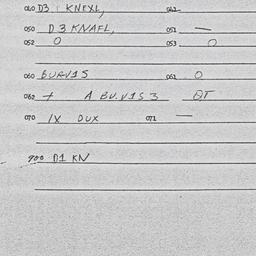 040 D3 KNEXL, 042
050 D3 KNAFL, 051 —
052 O 053 O
060 BURV1S 061 O
062 + A BU.V1S 3 QT
070 1X DUX 071 —
900 D1 KN